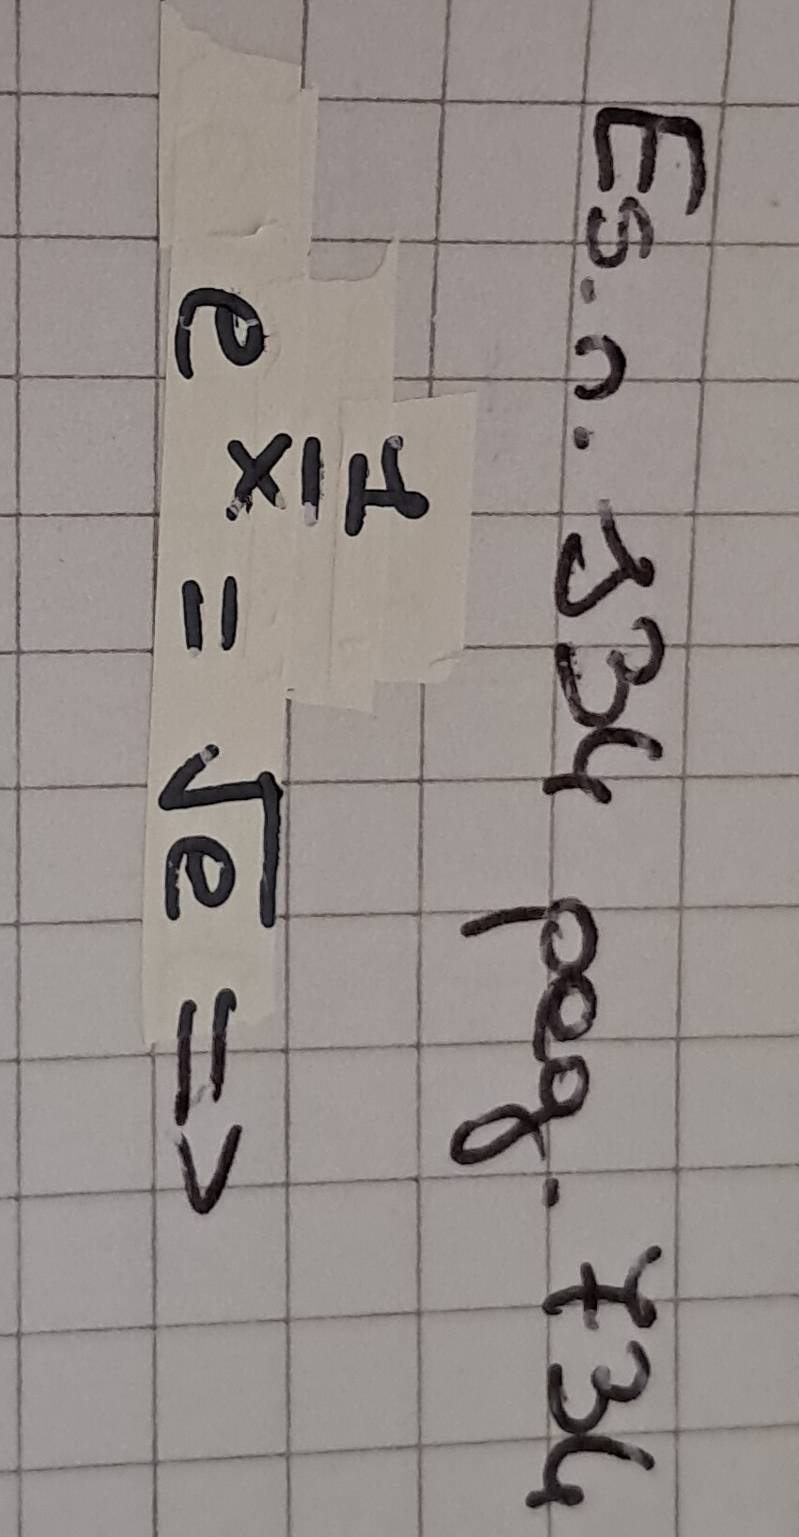 Es. n. 134 pag. 734
e^(1/x) = √e =>